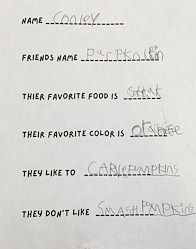 NAME Conley
FRIENDS NAME Parpknlin
THIER FAVORITE FOOD IS steak
THEIR FAVORITE COLOR IS orange
THEY LIKE TO CARVE PUMPKINS
THEY DON'T LIKE SMASH PUMPKINS